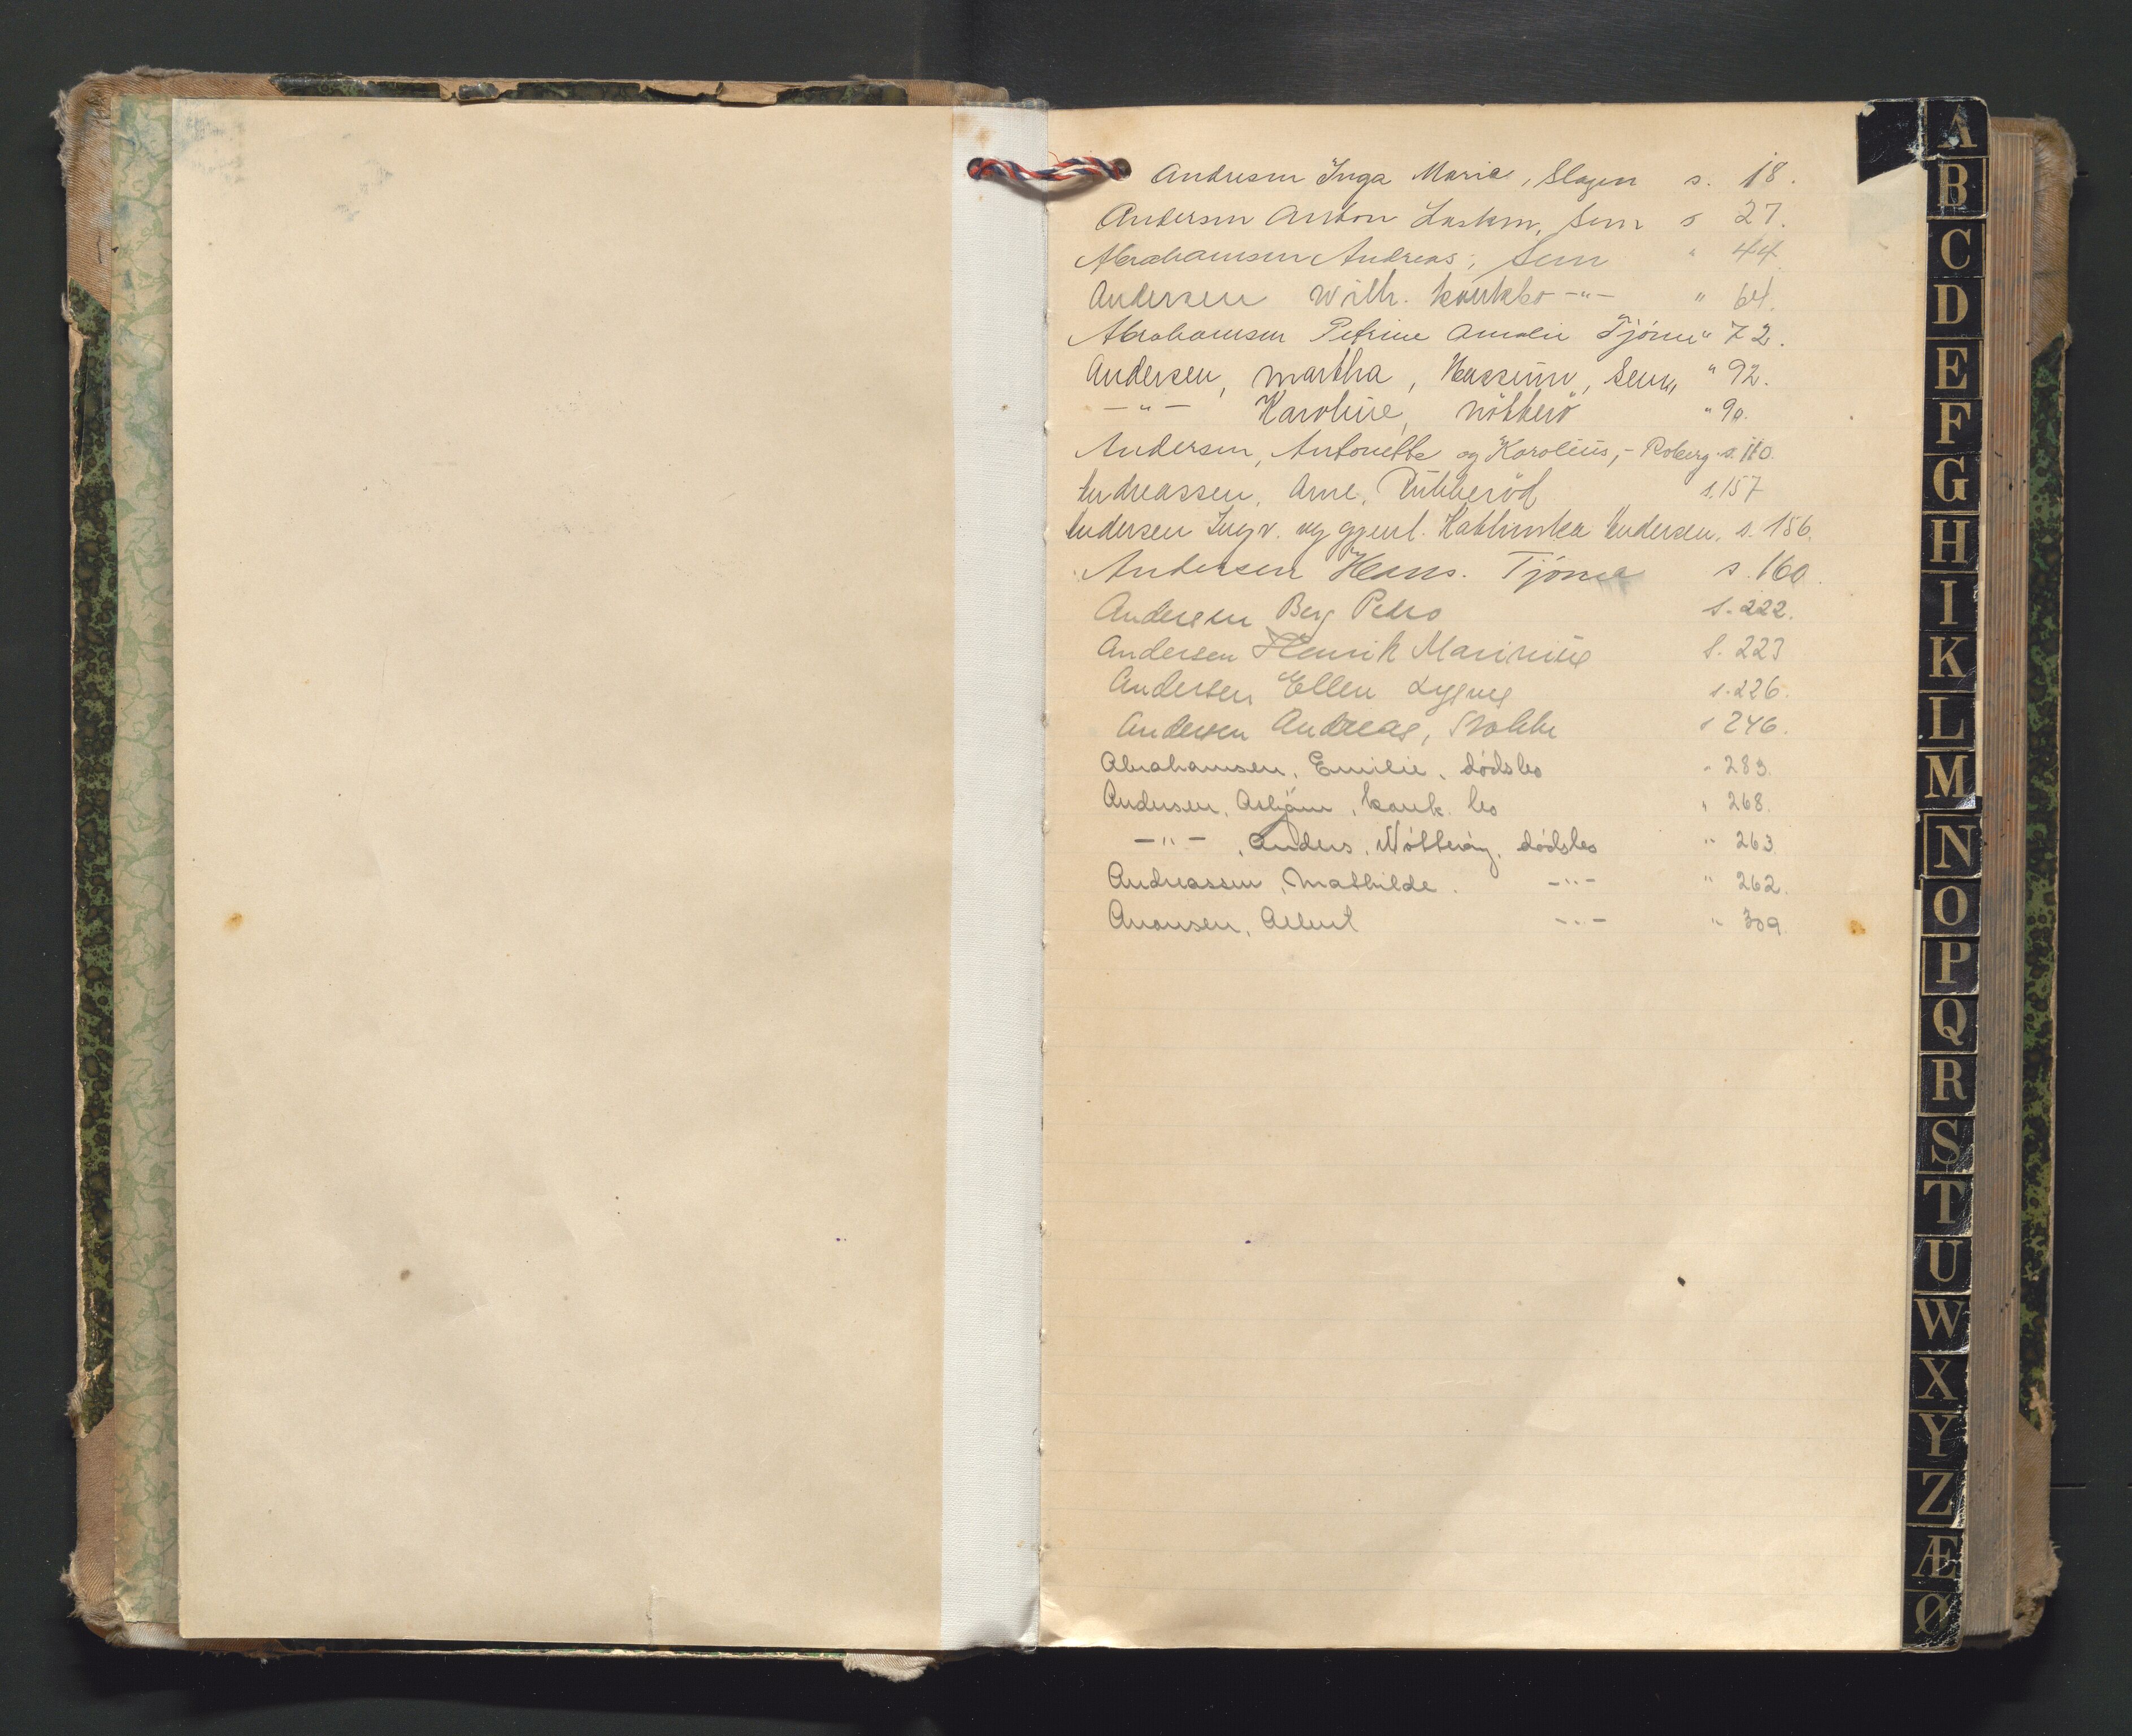 Andresen Inga Marie, Slagen s. 18.
Andersen Anton Sem s 27.
Abrahamsen Andreas, Sem " 44
Andersen Wilh. konkbo -"- " 64.
Abrahamsen Petrine Amalie Tjöme " 72.
Andersen, Martha, Sem, " 92.
-"- Karoline, Nötterö " 90.
Andersen, Antonette og Karolius, - Roberg s. 110.
Andreassen, Arne, s. 157
Andersen Ingv. og gjenl. Kathinka Andersen, s. 156.
Andersen Hans. Tjöme s. 160.
Andersen Berg Pedro s. 222.
Andersen Henrik Marinius S. 223
Andersen Ellen s. 226.
Andersen Andreas, s 246.
Abrahamsen, Emilie, dödsbo " 283.
Andersen, Asbjörn, konk. bo " 268.
-"- , Anders, Nötteröy, dödsbo " 263
Andreassen, Mathilde. -"- " 262.
Aronsen, Albert -"- " 309.
A
B
C
D
E
F
G
H
I
K
L
M
N
O
P
Q
R
S
T
U
W
X
Y
Z
Æ
Ø